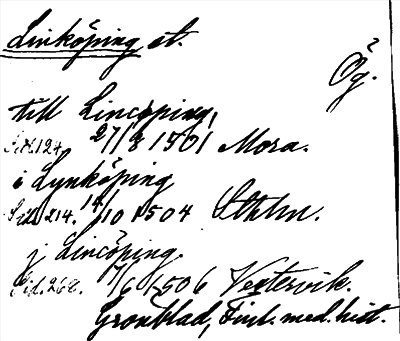 Linköping st.
Ög.
till Lincöping,
Sid. 124. 27/8 1501 Mora.
i Lynköping
Sid. 214. 14/10 1504 Sthlm.
j Lincöping
Sid. 268. 17/6 1506 Vestervik.
Grönblad, Finl. med. hist.